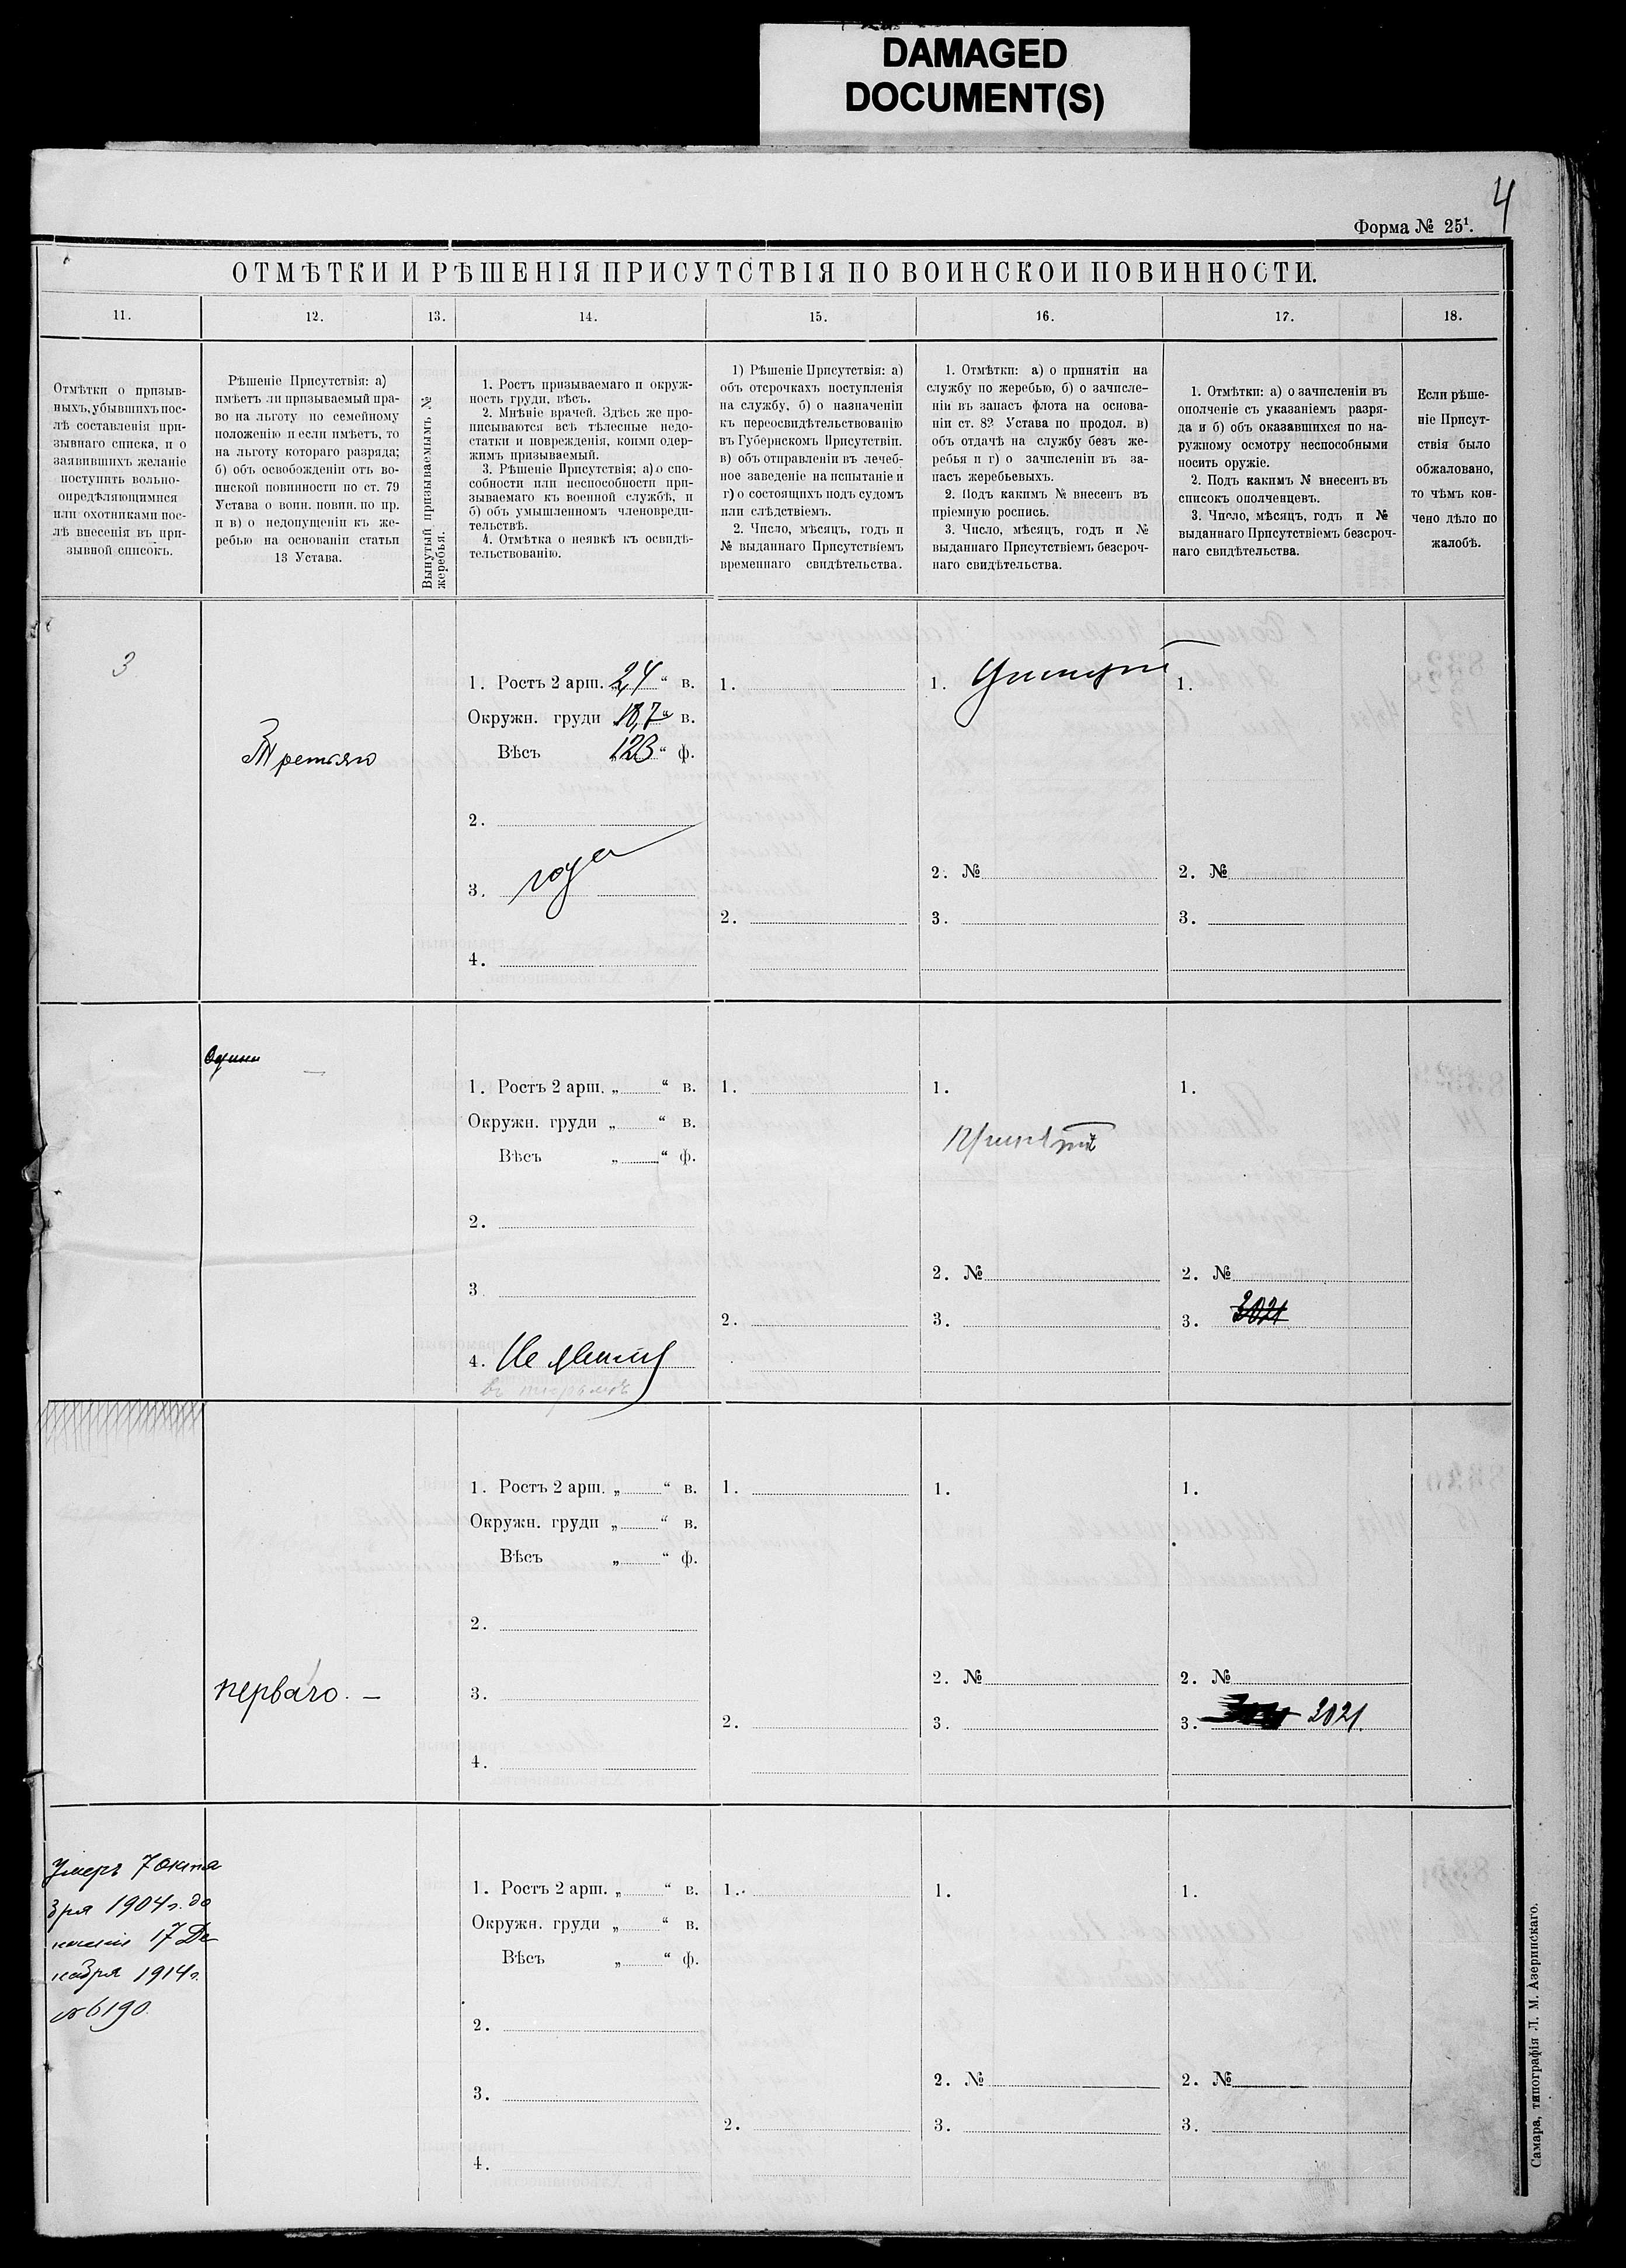 DAMAGED
DOCUMENT(S)
4
Форма № 25¹.
ОТМѢТКИ И РѢШЕНІЯ ПРИСУТСТВІЯ ПО ВОИНСКОЙ ПОВИННОСТИ.
11. 12. 13. 14. 15. 16. 17. 18.
Отмѣтки о призыв-
ныхъ, убывшихъ пос-
лѣ составленія при-
зывнаго списка, и о
заявившихъ желаніе
поступить вольно-
опредѣляющимися
или охотниками пос-
лѣ внесенія въ при-
зывной списокъ.
Рѣшеніе Присутствія: а)
имѣетъ ли призываемый пра-
во на льготу по семейному
положенію и если имѣетъ, то
на льготу котораго разряда;
б) объ освобожденіи отъ во-
инской повинности по ст. 79
Устава о воин. повин. по пр.
и в) о недопущеніи къ же-
ребью на основаніи статьи
13 Устава.
Вынутый призываемымъ №
жеребья.
1. Ростъ призываемаго и окруж-
ность груди, вѣсъ.
2. Мнѣніе врачей. Здѣсь же про-
писываются всѣ тѣлесные недо-
статки и поврежденія, коими одер-
жимъ призываемый.
3. Рѣшеніе Присутствія: а) о спо-
собности или неспособности при-
зываемаго къ военной службѣ, и
б) объ умышленномъ членовреди-
тельствѣ.
4. Отмѣтка о неявкѣ къ освидѣ-
тельствованію.
1) Рѣшеніе Присутствія: а)
объ отсрочкахъ поступленія
на службу, б) о назначеніи
къ переосвидѣтельствованію
въ Губернскомъ Присутствіи.
в) объ отправленіи въ лечеб-
ное заведеніе на испытаніе и
г) о состоящихъ подъ судомъ
или слѣдствіемъ.
2. Число, мѣсяцъ, годъ и
№ выданнаго Присутствіемъ
временнаго свидѣтельства.
1. Отмѣтки: а) о принятіи на
службу по жеребью, б) о зачисле-
ніи въ запасъ флота на основа-
ніи ст. 82 Устава по продол. в)
объ отдачѣ на службу безъ же-
ребья и г) о зачисленіи въ за-
пасъ жеребьевыхъ.
2. Подъ какимъ № внесенъ въ
пріемную роспись.
3. Число, мѣсяцъ, годъ и №
выданнаго Присутствіемъ безсроч-
наго свидѣтельства.
1. Отмѣтки: а) о зачисленіи въ
ополченіе съ указаніемъ разря-
да и б) объ оказавшихся по на-
ружному осмотру неспособными
носить оружіе.
2. Подъ какимъ № внесенъ въ
списокъ ополченцевъ.
3. Число, мѣсяцъ, годъ и №
выданнаго Присутствіемъ безсроч-
наго свидѣтельства.
Если рѣше-
ніе Присут-
ствія было
обжаловано,
то чѣмъ кон-
чено дѣло по
жалобѣ.
3
Третьяго
1. Ростъ 2 арш. 2,4 “ в.
Окружн. груди 18,7 “ в.
Вѣсъ 123 “ ф.
2.
3. годен
4.
1.
2.
1.
2. №
3.
1.
2. №
3.
Один
1. Ростъ 2 арш. „ “ в.
Окружн. груди „ “ в.
Вѣсъ „ “ ф.
2.
3.
4. Не явился
въ тюрьмѣ
1.
2.
1.
2. №
3.
1.
2. №
3. 2021
перваго. —
1. Ростъ 2 арш. „ “ в.
Окружн. груди „ “ в.
Вѣсъ „ “ ф.
2.
3.
4.
1.
2.
1.
2. №
3.
1.
2. №
3. 2021.
Умеръ 7 октя
бря 1904 г. до
несеніе 17 Де
кабря 1914 г.
№ 6190.
1. Ростъ 2 арш. „ “ в.
Окружн. груди „ “ в.
Вѣсъ „ “ ф.
2.
3.
4.
1.
2.
1.
2. №
3.
1.
2. №
3.
Самара, типографія Л. М. Азеринскаго.